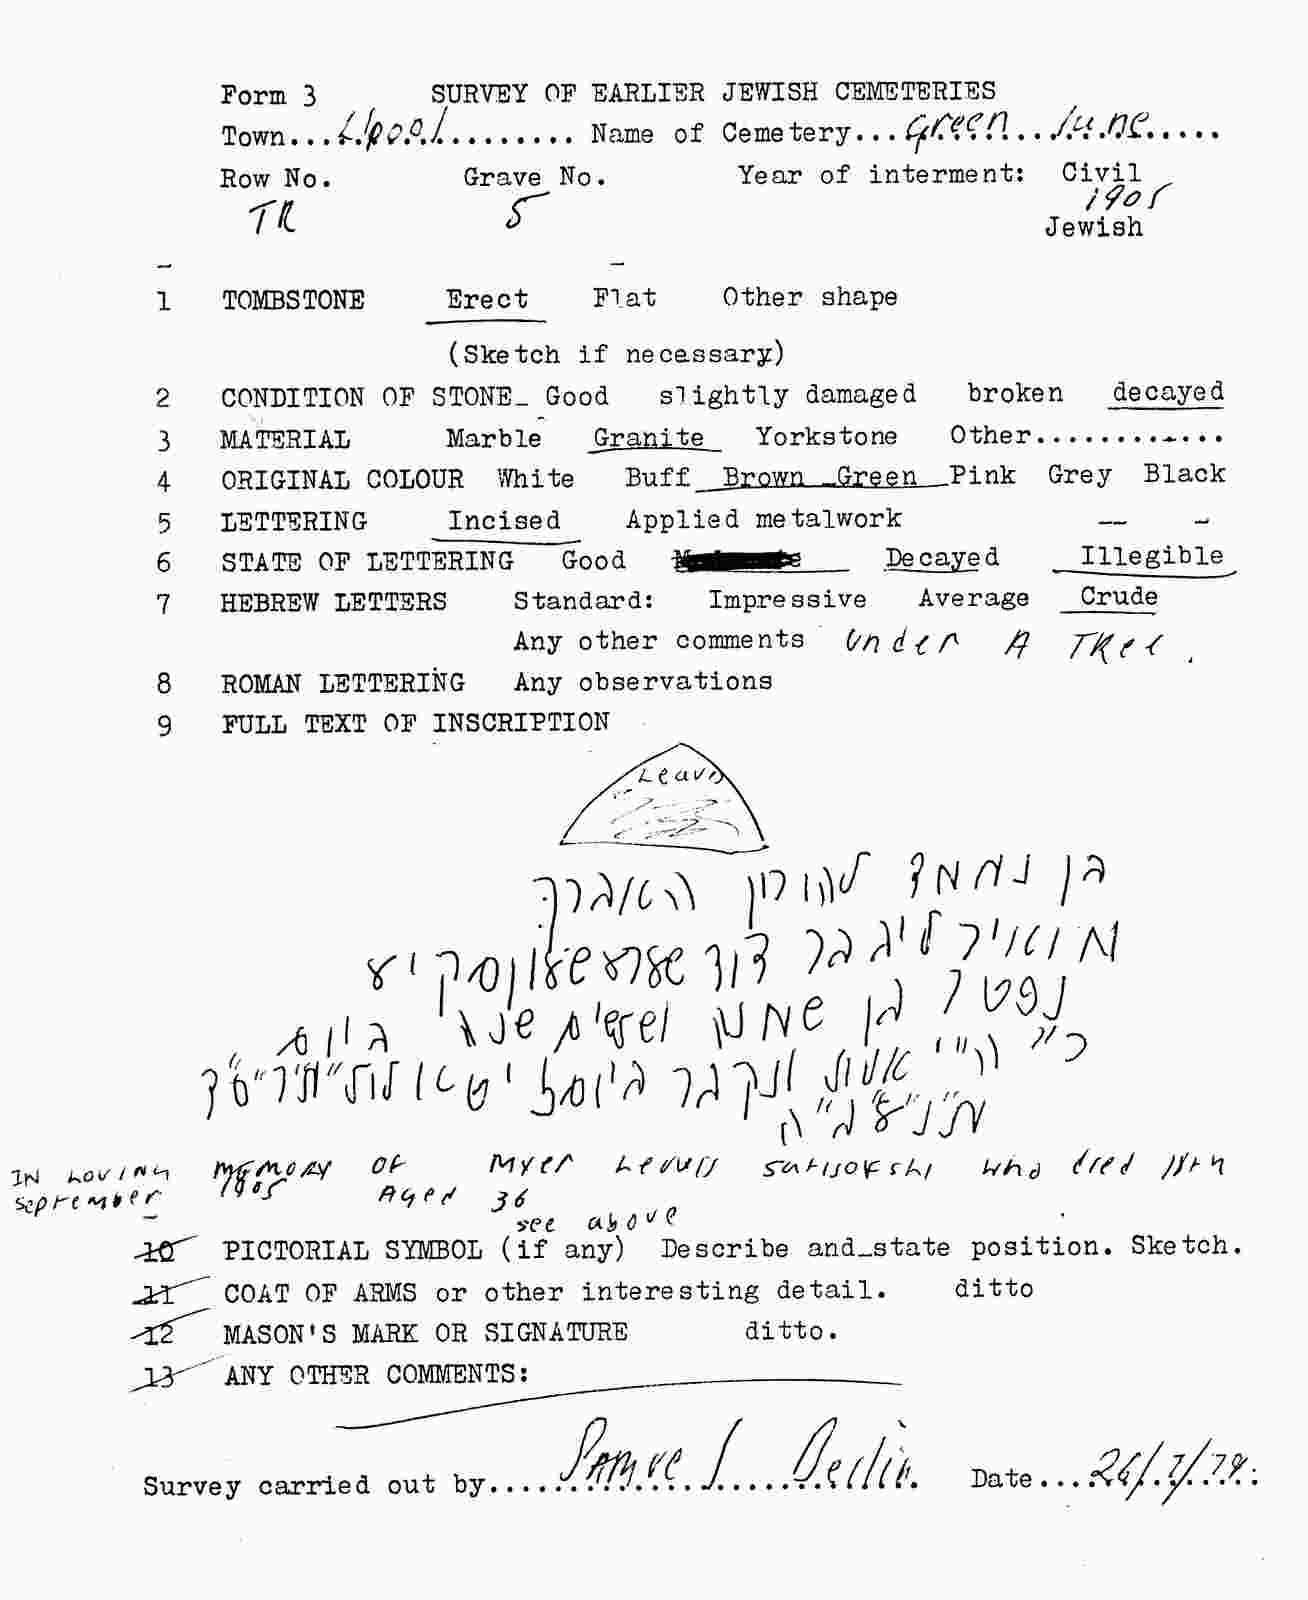 Form 3 SURVEY OF EARLIER JEWISH CEMETERIES
Town...L'pool......... Name of Cemetery...Green Lane.....
Row No. Grave No. Year of interment: Civil
TR 5 1905
Jewish
1 TOMBSTONE Erect Flat Other shape
(Sketch if necessary)
2 CONDITION OF STONE Good slightly damaged broken decayed
3 MATERIAL Marble Granite Yorkstone Other............
4 ORIGINAL COLOUR White Buff Brown Green Pink Grey Black
5 LETTERING Incised Applied metalwork
6 STATE OF LETTERING Good Decayed Illegible
7 HEBREW LETTERS Standard: Impressive Average Crude
Any other comments Under A Tree.
8 ROMAN LETTERING Any observations
9 FULL TEXT OF INSCRIPTION
Leaves
בן נחמד להורין
דוד
נפטר בן שנה ביום
ונקבר ביום
ת"נ"צ"ב"ה
IN Loving memory OF Myer who died 18th
September 1905 Aged 36
see above
10 PICTORIAL SYMBOL (if any) Describe and state position. Sketch.
11 COAT OF ARMS or other interesting detail. ditto
12 MASON'S MARK OR SIGNATURE ditto.
13 ANY OTHER COMMENTS:
Survey carried out by....Samuel Berlin. Date...26/7/78.